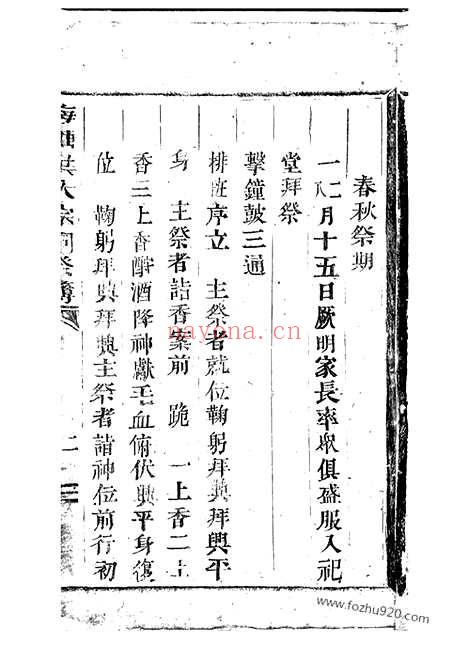 春秋祭期
一二八月十五日厥明家長率衆俱盛服入祀
堂拜祭
擊鐘鼓三通
排班序立 主祭者就位鞠躬拜興拜興平
身 主祭者詣香案前 跪 一上香二上
香三上香酹酒降神獻毛血俯伏興平身復
位 鞠躬拜興拜興主祭者詣神位前行初
大宗祠祭簿 二
nayona.cn
www.fozhu920.com